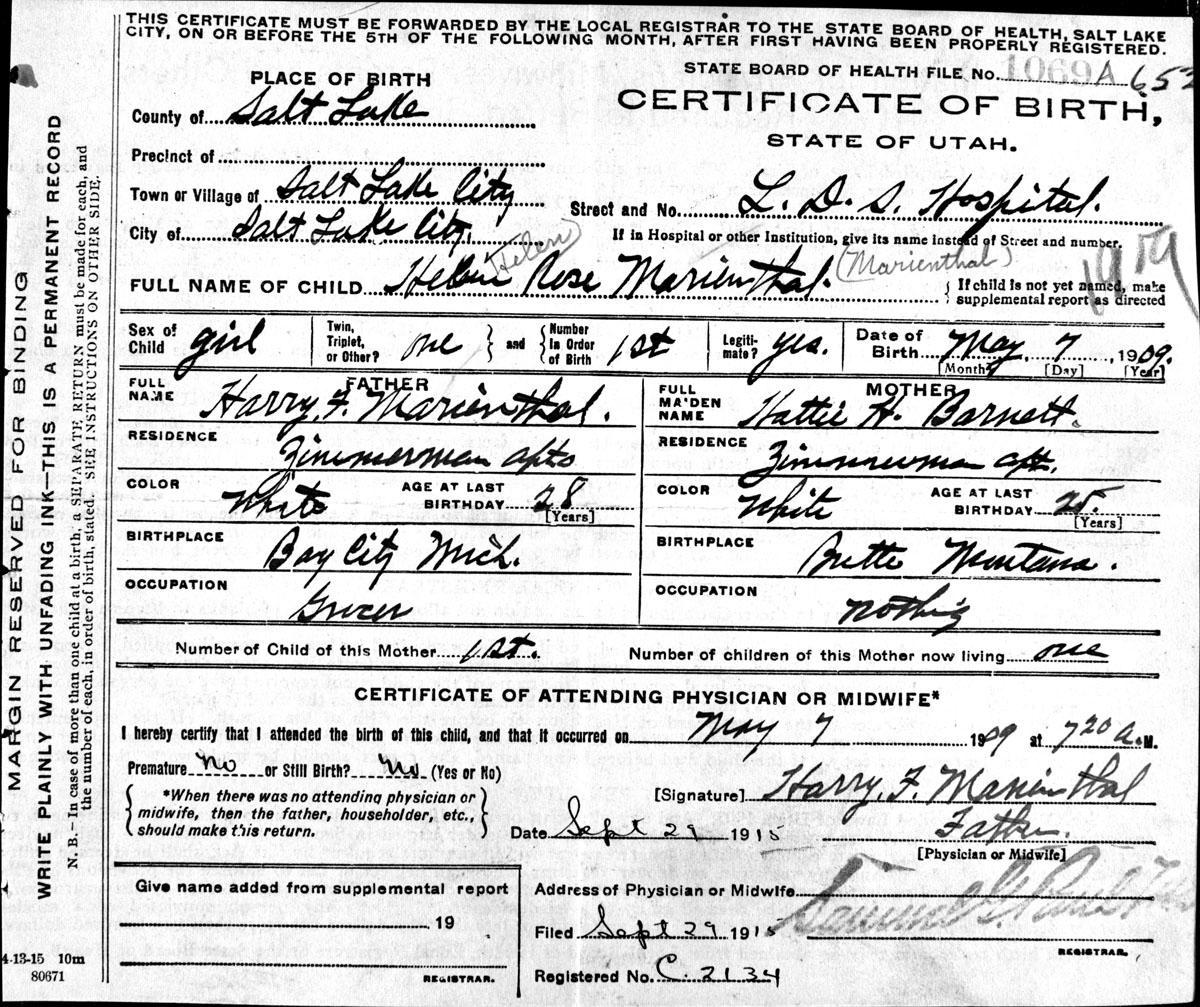 THIS CERTIFICATE MUST BE FORWARDED BY THE LOCAL REGISTRAR TO THE STATE BOARD OF HEALTH, SALT LAKE
CITY, ON OR BEFORE THE 5TH OF THE FOLLOWING MONTH, AFTER FIRST HAVING BEEN PROPERLY REGISTERED.
STATE BOARD OF HEALTH FILE No. 1069A
PLACE OF BIRTH
CERTIFICATE OF BIRTH,
STATE OF UTAH.
County of Salt Lake
Precinct of
Town or Village of Salt Lake City
Street and No. L. D. S. Hospital.
City of Salt Lake City.
If in Hospital or other Institution, give its name instead of Street and number.
(Helen) (Marienthal) 1909
FULL NAME OF CHILD Helen Rose Marienthal. { If child is not yet named, make
supplemental report as directed
Sex of Child girl Twin, Triplet, or Other? one } and { Number In Order of Birth 1st Legiti-mate? yes. Date of Birth May 7, 1909.
[Month] [Day] [Year]
FATHER
FULL NAME Harry F. Marienthal.
RESIDENCE Zimmerman apts
COLOR White AGE AT LAST BIRTHDAY 28
[Years]
BIRTHPLACE Bay City Mich.
OCCUPATION Grocer
MOTHER
FULL MAIDEN NAME Hattie H. Barnett.
RESIDENCE Zimmerman apts.
COLOR White AGE AT LAST BIRTHDAY 25.
[Years]
BIRTHPLACE Butte Montana.
OCCUPATION nothing
Number of Child of this Mother 1st. Number of children of this Mother now living one
CERTIFICATE OF ATTENDING PHYSICIAN OR MIDWIFE*
I hereby certify that I attended the birth of this child, and that it occurred on May 7 1909 at 7 20 A.M.
Premature no or Still Birth? no (Yes or No)
{ *When there was no attending physician or
midwife, then the father, householder, etc.,
should make this return. }
[Signature] Harry F. Marienthal
Date Sept 29 1915 Father.
[Physician or Midwife]
Give name added from supplemental report
19
REGISTRAR.
Address of Physician or Midwife
Filed Sept 29 1915
REGISTRAR.
Registered No. C. 2134
4-13-15 10m
80671
MARGIN RESERVED FOR BINDING
WRITE PLAINLY WITH UNFADING INK—THIS IS A PERMANENT RECORD
N. B.—In case of more than one child at a birth, a SEPARATE RETURN must be made for each, and
the number of each, in order of birth, stated. SEE INSTRUCTIONS ON OTHER SIDE.